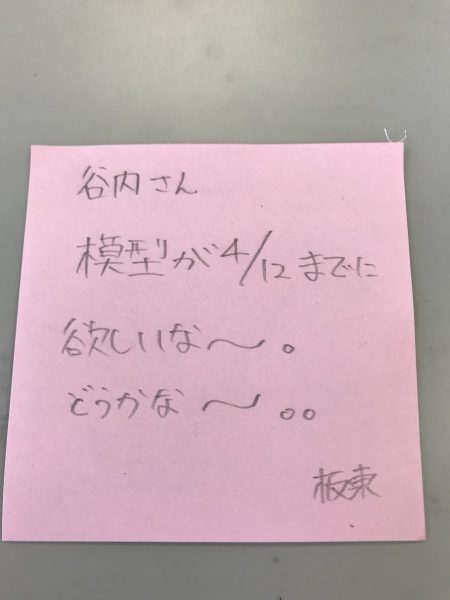 谷内さん
模型が4/12までに
欲しいな〜。
どうかな〜。。
板東